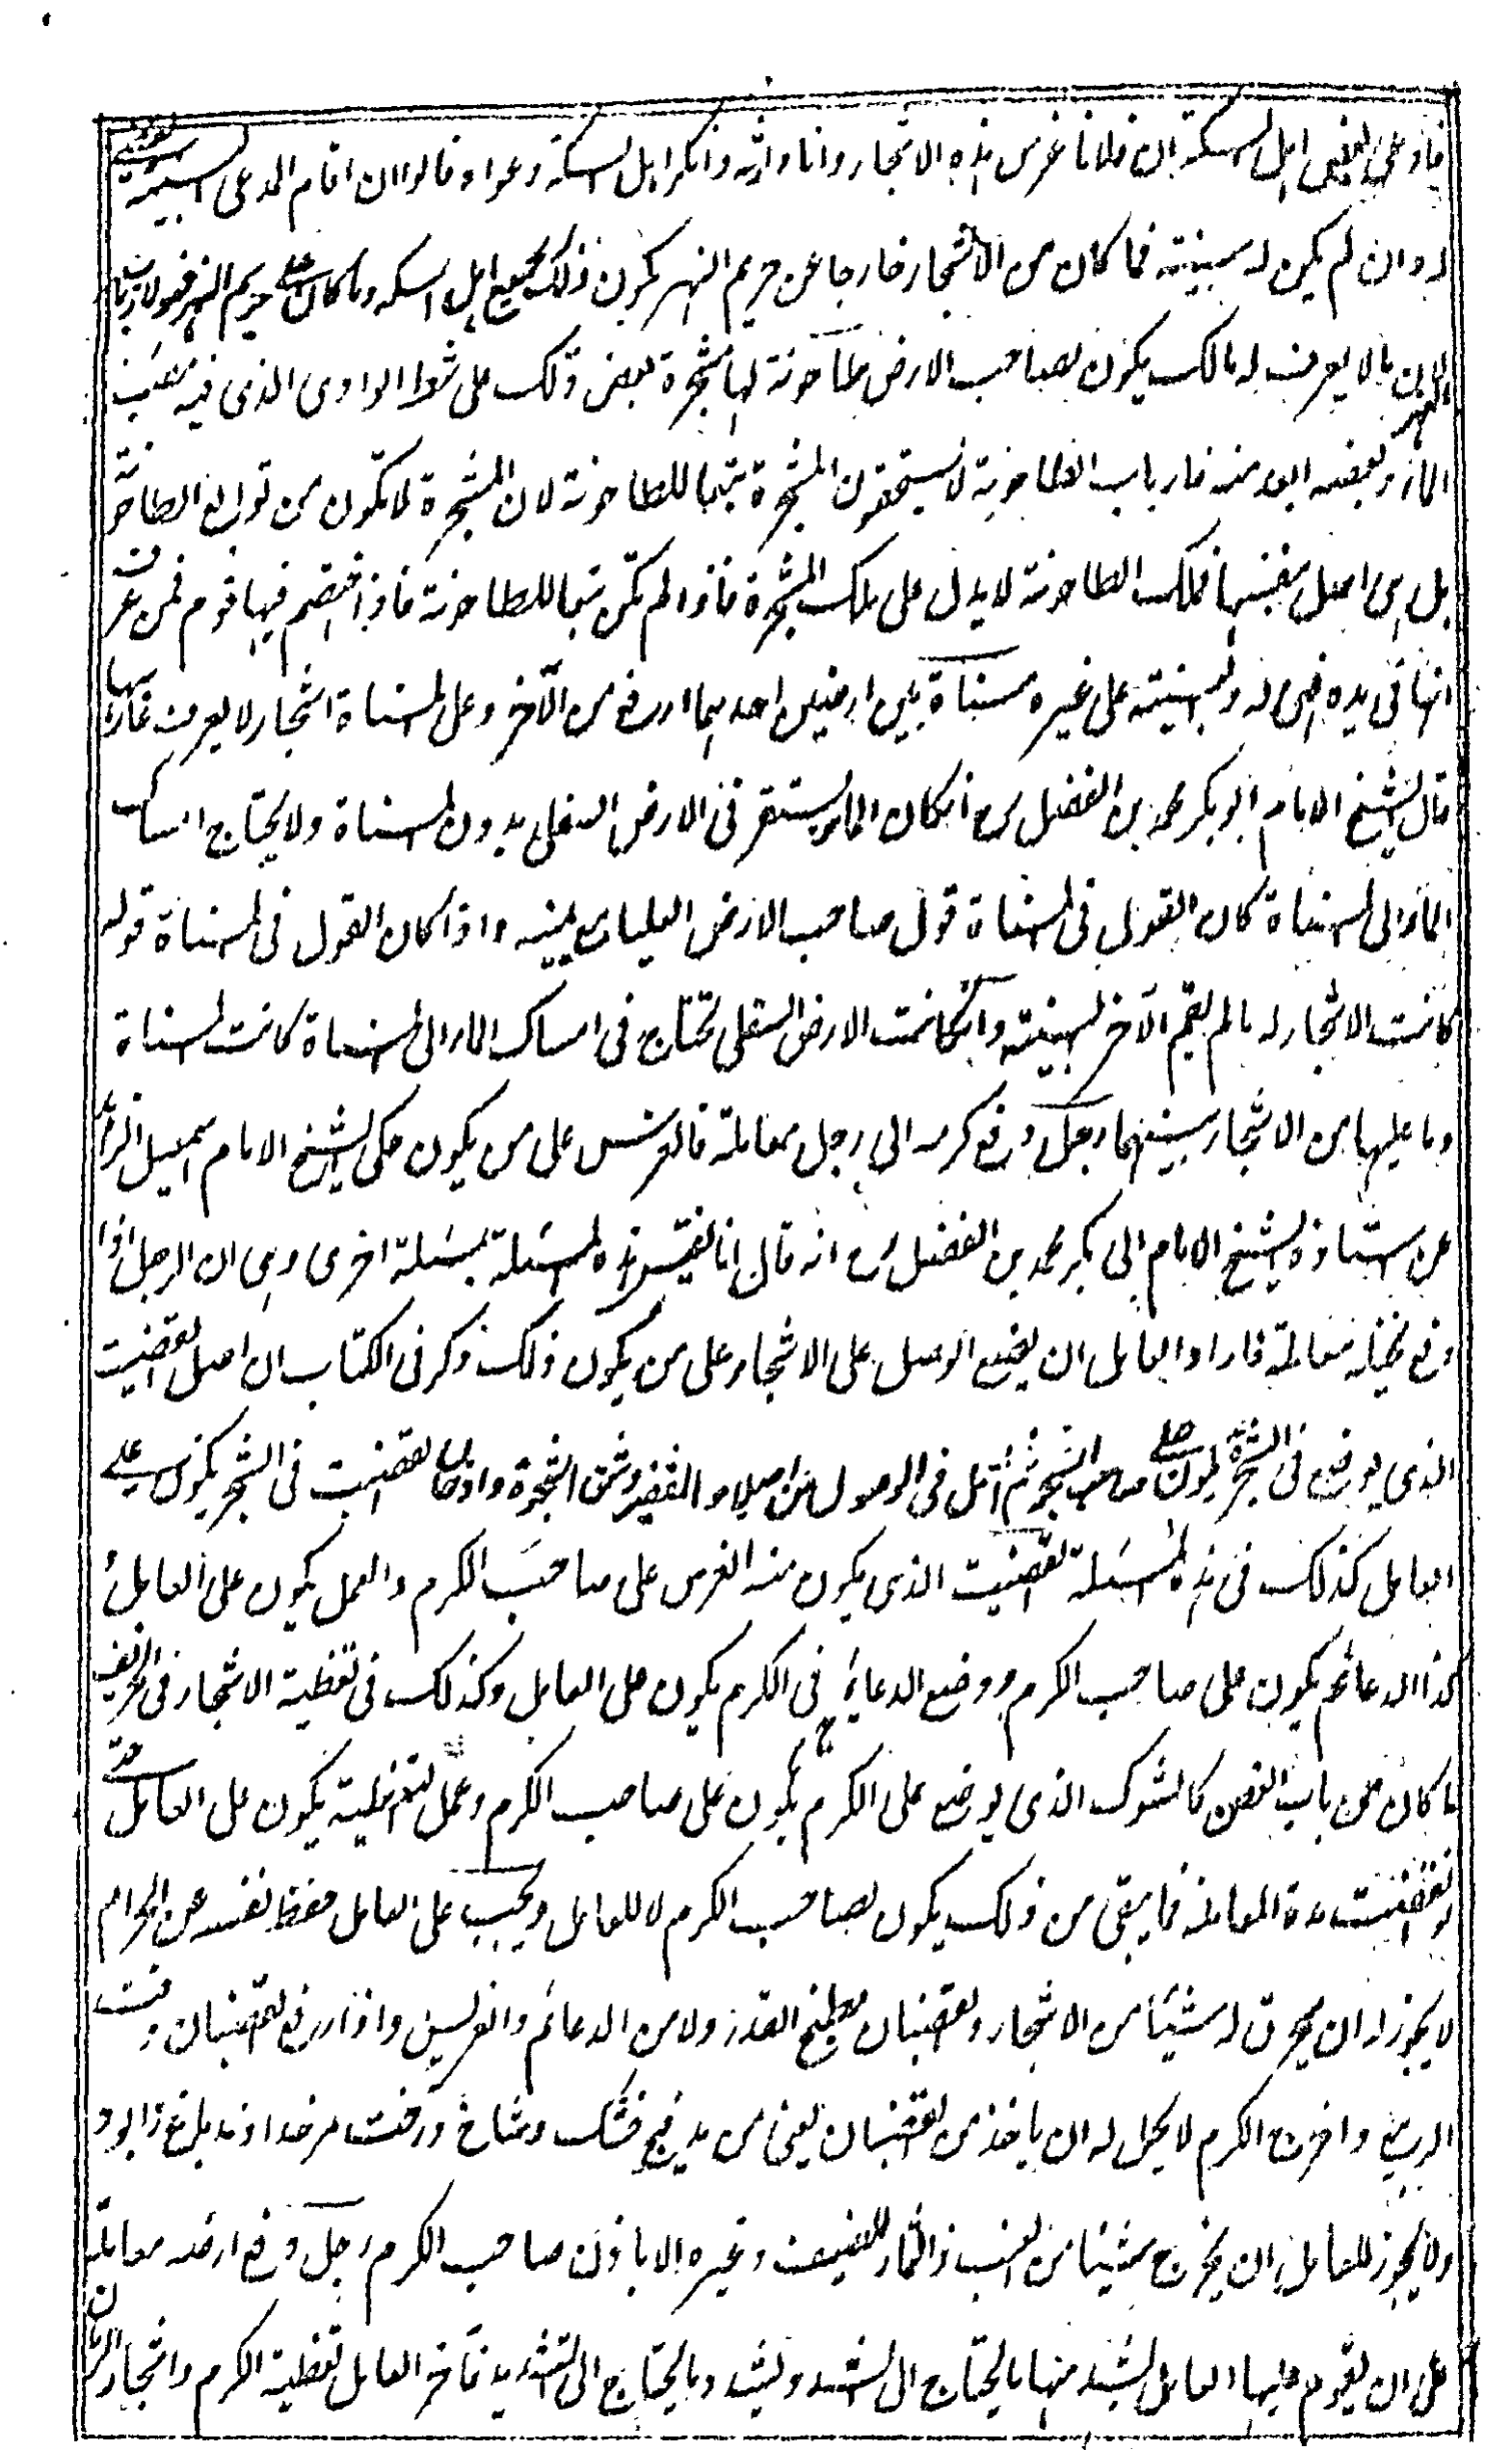 فادعى بعض اهل السكة ان فلانا غرس هذه الاشجار وانا وارثه وانكر اهل السكة دعواه قالوا ان اقام المدعى البينة يقضى
له وان لم يكن له بينة فما كان من الاشجار خارجا عن حريم النهر يكون ذلك لجميع اهل السكه وما كان على حريم النهر فهو لارباب
النهر لان ما لا يعرف له مالك يكون لصاحب الارض طاحونة لها مشجرة بعض ذلك على شط الوادى الذى فيه مصب
الماء وبعضه ابعد منه فارباب الطاحونة لا يستحقون المشجرة تبعا للطاحونة لان المشجرة لا تكون من توابع الطاحونة
بل هى اصل بنفسها فملك الطاحونة لا يدل على ملك المشجرة فاذا لم تكن تبعا للطاحونة فاذا اختصم فيها قوم فمن عرف
انها فى يده فهى له والبينة على غيره مسناة بين ارضين احديهما ارفع من الآخر وعلى المسناة اشجار لا يعرف غارسها
قال الشيخ الامام ابو بكر محمد بن الفضل رح ان كان الماء يستقر فى الارض السفلى بدون المسناة ولا يحتاج امساك
الماء الى المسناة كان القول فى المسناة قول صاحب الارض العليا مع يمينه واذا كان القول فى المسناة قوله
كانت الاشجار له ما لم يقم الآخر البينة وان كانت الارض السفلى تحتاج فى امساك الماء الى المسناة كانت المسناة
وما عليها من الاشجار بينهما رجل دفع كرمه الى رجل معاملة فالغرس على من يكون حكى الشيخ الامام اسمعيل الزاهد
عن استاذه الشيخ الامام ابى بكر محمد بن الفضل رح انه قال انا نقيس هذه المسئلة بمسئلة اخرى وهى ان الرجل اذا
دفع نخيله معاملة فاراد العامل ان يضع الوصل على الاشجار على من يكون ذلك ذكر فى الكتاب ان اصل القضيب
الذى يوضع فى الشجرة يكون على صاحب الشجر ثم العمل فى الوصول من اصلاح القضيب وشق الشجرة وادخال القضيب فى الشجر يكون على
العامل كذلك فى هذه المسئلة القضيب الذى يكون منه الغرس على صاحب الكرم والعمل يكون على العامل
كذا الدعائم يكون على صاحب الكرم ووضع الدعائم فى الكرم يكون على العامل وكذلك فى تغطية الاشجار فى الخريف
ما كان من باب الغصن كالشوك الذى يوضع على الكرم يكون على صاحب الكرم وعمل التغطية يكون على العامل حتى
لو انقضت مدة المعاملة فما يبقى من ذلك يكون لصاحب الكرم لا للعامل ويجب على العامل حفظ نفسه عن الحرام
لا يجوز له ان يحرق له شيئا من الاشجار والقضبان لطبخ القدر ولا من الدعائم والعريش واذا رفع القضبان وقت
الربيع واخرج الكرم لا يحل له ان ياخذ من القضبان يعنى من خشك وشاخ درخت مر خداوند باغ را بود
ولا يجوز للعامل ان يخرج شيئا من العنب والثمار للضيف وغيره الا باذن صاحب الكرم رجل دفع ارضه معاملة
على ان يقوم عليها العامل ليشد منها ما يحتاج الى الشد ويشد ما يحتاج الى التشديد فآخر العامل تغطية الكرم واشجار الرمان